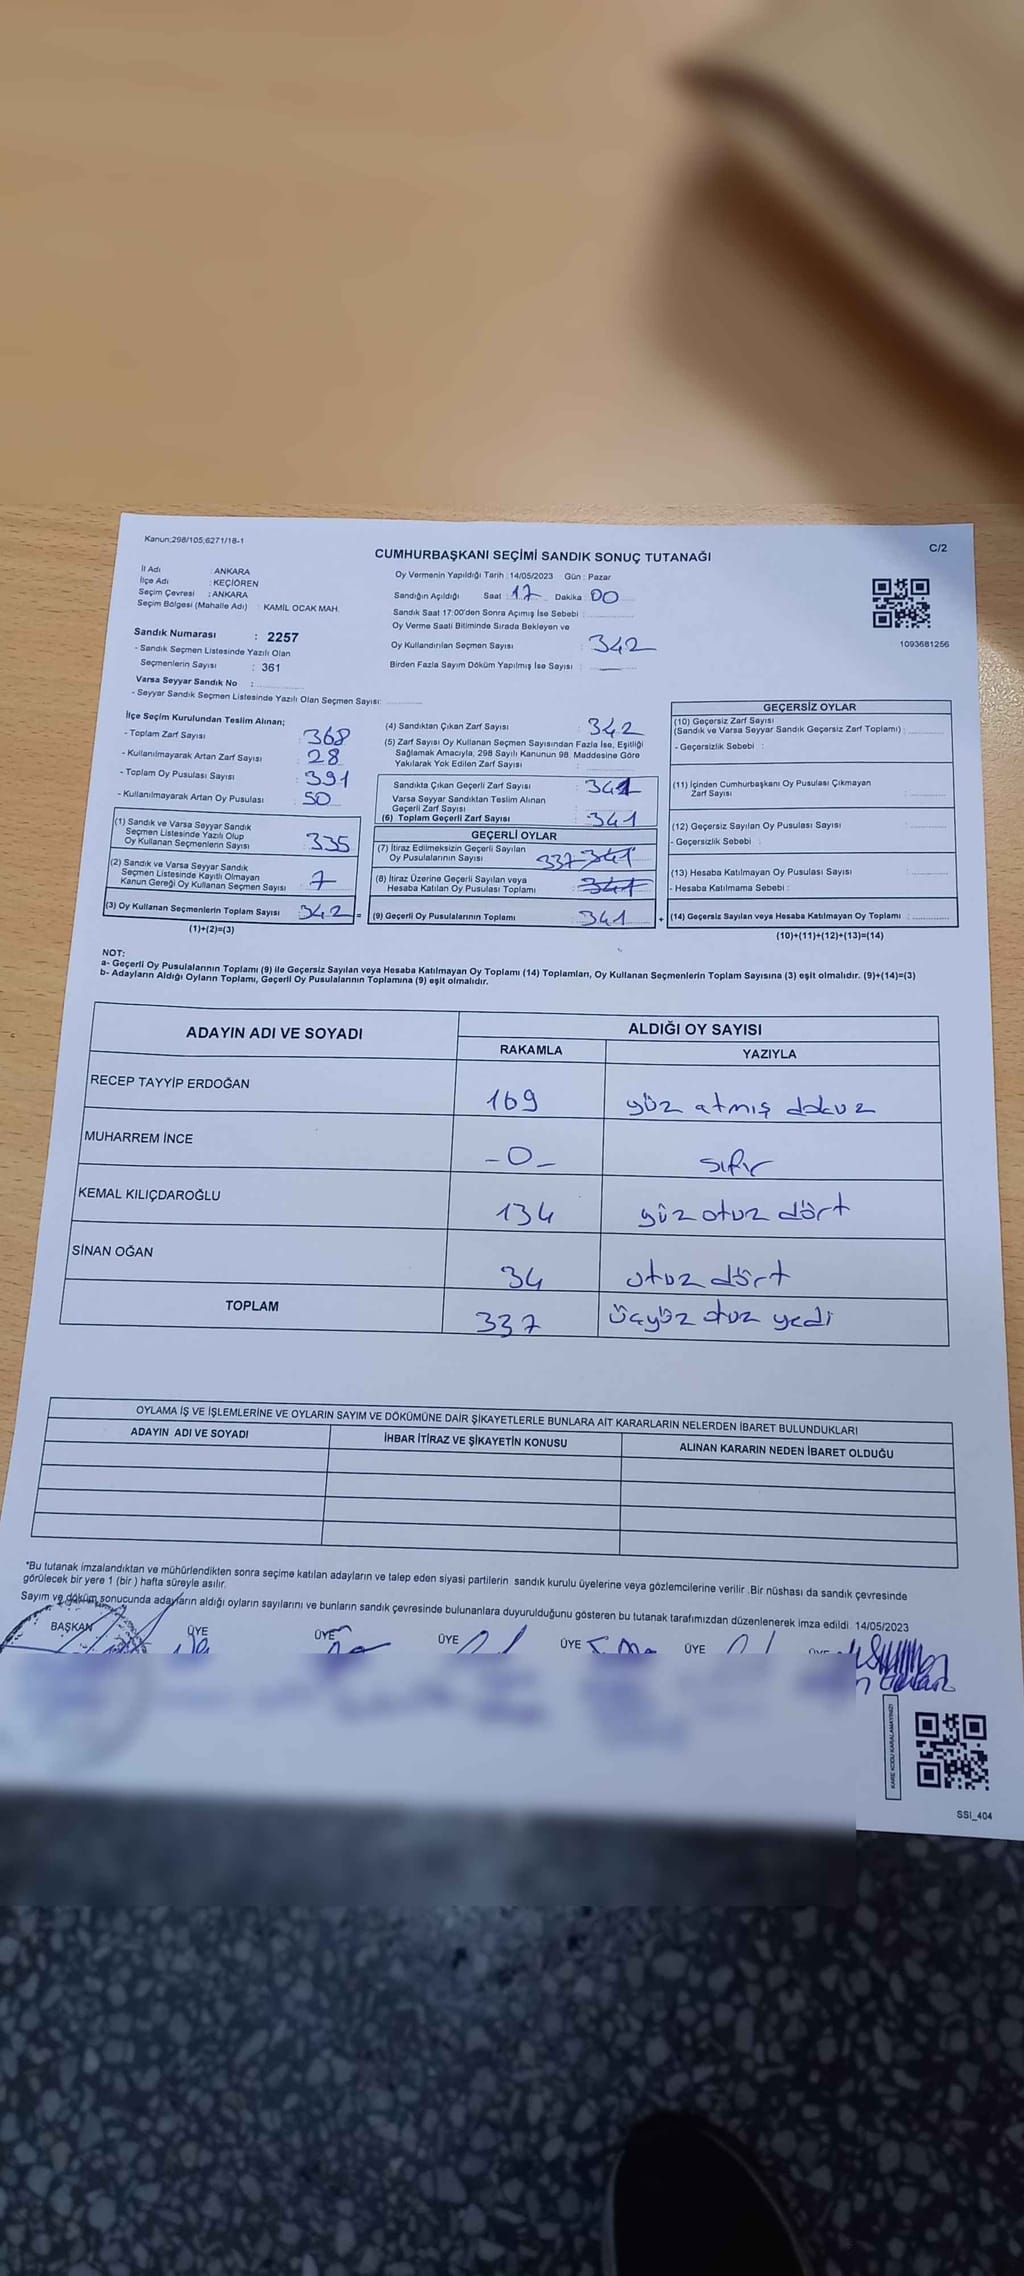 Kanun;298/105;6271/18-1
C/2
CUMHURBAŞKANI SEÇİMİ SANDIK SONUÇ TUTANAĞI
İl Adı : ANKARA
İlçe Adı : KEÇİÖREN
Seçim Çevresi : ANKARA
Seçim Bölgesi (Mahalle Adı) : KAMİL OCAK MAH.
Oy Vermenin Yapıldığı Tarih : 14/05/2023 Gün : Pazar
Sandığın Açıldığı Saat : 17 Dakika : 00
Sandık Saat 17:00'den Sonra Açımış İse Sebebi :
Oy Verme Saati Bitiminde Sırada Bekleyen ve
Oy Kullandırılan Seçmen Sayısı : 342
Birden Fazla Sayım Döküm Yapılmış İse Sayısı :
1093681256
Sandık Numarası : 2257
- Sandık Seçmen Listesinde Yazılı Olan
Seçmenlerin Sayısı : 361
Varsa Seyyar Sandık No :
- Seyyar Sandık Seçmen Listesinde Yazılı Olan Seçmen Sayısı:
İlçe Seçim Kurulundan Teslim Alınan;
- Toplam Zarf Sayısı : 368
- Kullanılmayarak Artan Zarf Sayısı : 28
- Toplam Oy Pusulası Sayısı : 391
- Kullanılmayarak Artan Oy Pusulası : 50
(1) Sandık ve Varsa Seyyar Sandık
Seçmen Listesinde Yazılı Olup
Oy Kullanan Seçmenlerin Sayısı : 335
(2) Sandık ve Varsa Seyyar Sandık
Seçmen Listesinde Kayıtlı Olmayan
Kanun Gereği Oy Kullanan Seçmen Sayısı : 7
(3) Oy Kullanan Seçmenlerin Toplam Sayısı : 342 =
(1)+(2)=(3)
(4) Sandıktan Çıkan Zarf Sayısı : 342
(5) Zarf Sayısı Oy Kullanan Seçmen Sayısından Fazla İse, Eşitliği
Sağlamak Amacıyla, 298 Sayılı Kanunun 98. Maddesine Göre
Yakılarak Yok Edilen Zarf Sayısı :
Sandıkta Çıkan Geçerli Zarf Sayısı : 341
Varsa Seyyar Sandıktan Teslim Alınan
Geçerli Zarf Sayısı :
(6) Toplam Geçerli Zarf Sayısı : 341
GEÇERLİ OYLAR
(7) İtiraz Edilmeksizin Geçerli Sayılan
Oy Pusulalarının Sayısı 337 341
(8) İtiraz Üzerine Geçerli Sayılan veya
Hesaba Katılan Oy Pusulası Toplamı : 341
(9) Geçerli Oy Pusulalarının Toplamı : 341 +
GEÇERSİZ OYLAR
(10) Geçersiz Zarf Sayısı
(Sandık ve Varsa Seyyar Sandık Geçersiz Zarf Toplamı) :
- Geçersizlik Sebebi :
(11) İçinden Cumhurbaşkanı Oy Pusulası Çıkmayan
Zarf Sayısı :
(12) Geçersiz Sayılan Oy Pusulası Sayısı :
- Geçersizlik Sebebi :
(13) Hesaba Katılmayan Oy Pusulası Sayısı :
- Hesaba Katılmama Sebebi :
(14) Geçersiz Sayılan veya Hesaba Katılmayan Oy Toplamı :
(10)+(11)+(12)+(13)=(14)
NOT:
a- Geçerli Oy Pusulalarının Toplamı (9) ile Geçersiz Sayılan veya Hesaba Katılmayan Oy Toplamı (14) Toplamları, Oy Kullanan Seçmenlerin Toplam Sayısına (3) eşit olmalıdır. (9)+(14)=(3)
b- Adayların Aldığı Oyların Toplamı, Geçerli Oy Pusulalarının Toplamına (9) eşit olmalıdır.
ADAYIN ADI VE SOYADI ALDIĞI OY SAYISI
RAKAMLA YAZIYLA
RECEP TAYYİP ERDOĞAN 169 yüz atmış dokuz
MUHARREM İNCE -0- sıfır
KEMAL KILIÇDAROĞLU 134 yüz otuz dört
SİNAN OĞAN 34 otuz dört
TOPLAM 337 üçyüz otuz yedi
OYLAMA İŞ VE İŞLEMLERİNE VE OYLARIN SAYIM VE DÖKÜMÜNE DAİR ŞİKAYETLERLE BUNLARA AİT KARARLARIN NELERDEN İBARET BULUNDUKLARI
ADAYIN ADI VE SOYADI İHBAR İTİRAZ VE ŞİKAYETİN KONUSU ALINAN KARARIN NEDEN İBARET OLDUĞU
*Bu tutanak imzalandıktan ve mühürlendikten sonra seçime katılan adayların ve talep eden siyasi partilerin sandık kurulu üyelerine veya gözlemcilerine verilir .Bir nüshası da sandık çevresinde
görülecek bir yere 1 (bir ) hafta süreyle asılır.
Sayım ve döküm sonucunda adayların aldığı oyların sayılarını ve bunların sandık çevresinde bulunanlara duyurulduğunu gösteren bu tutanak tarafımızdan düzenlenerek imza edildi. 14/05/2023
BAŞKAN ÜYE ÜYE ÜYE ÜYE ÜYE
KARE KODU KARALAMAYINIZ!
SSI_404